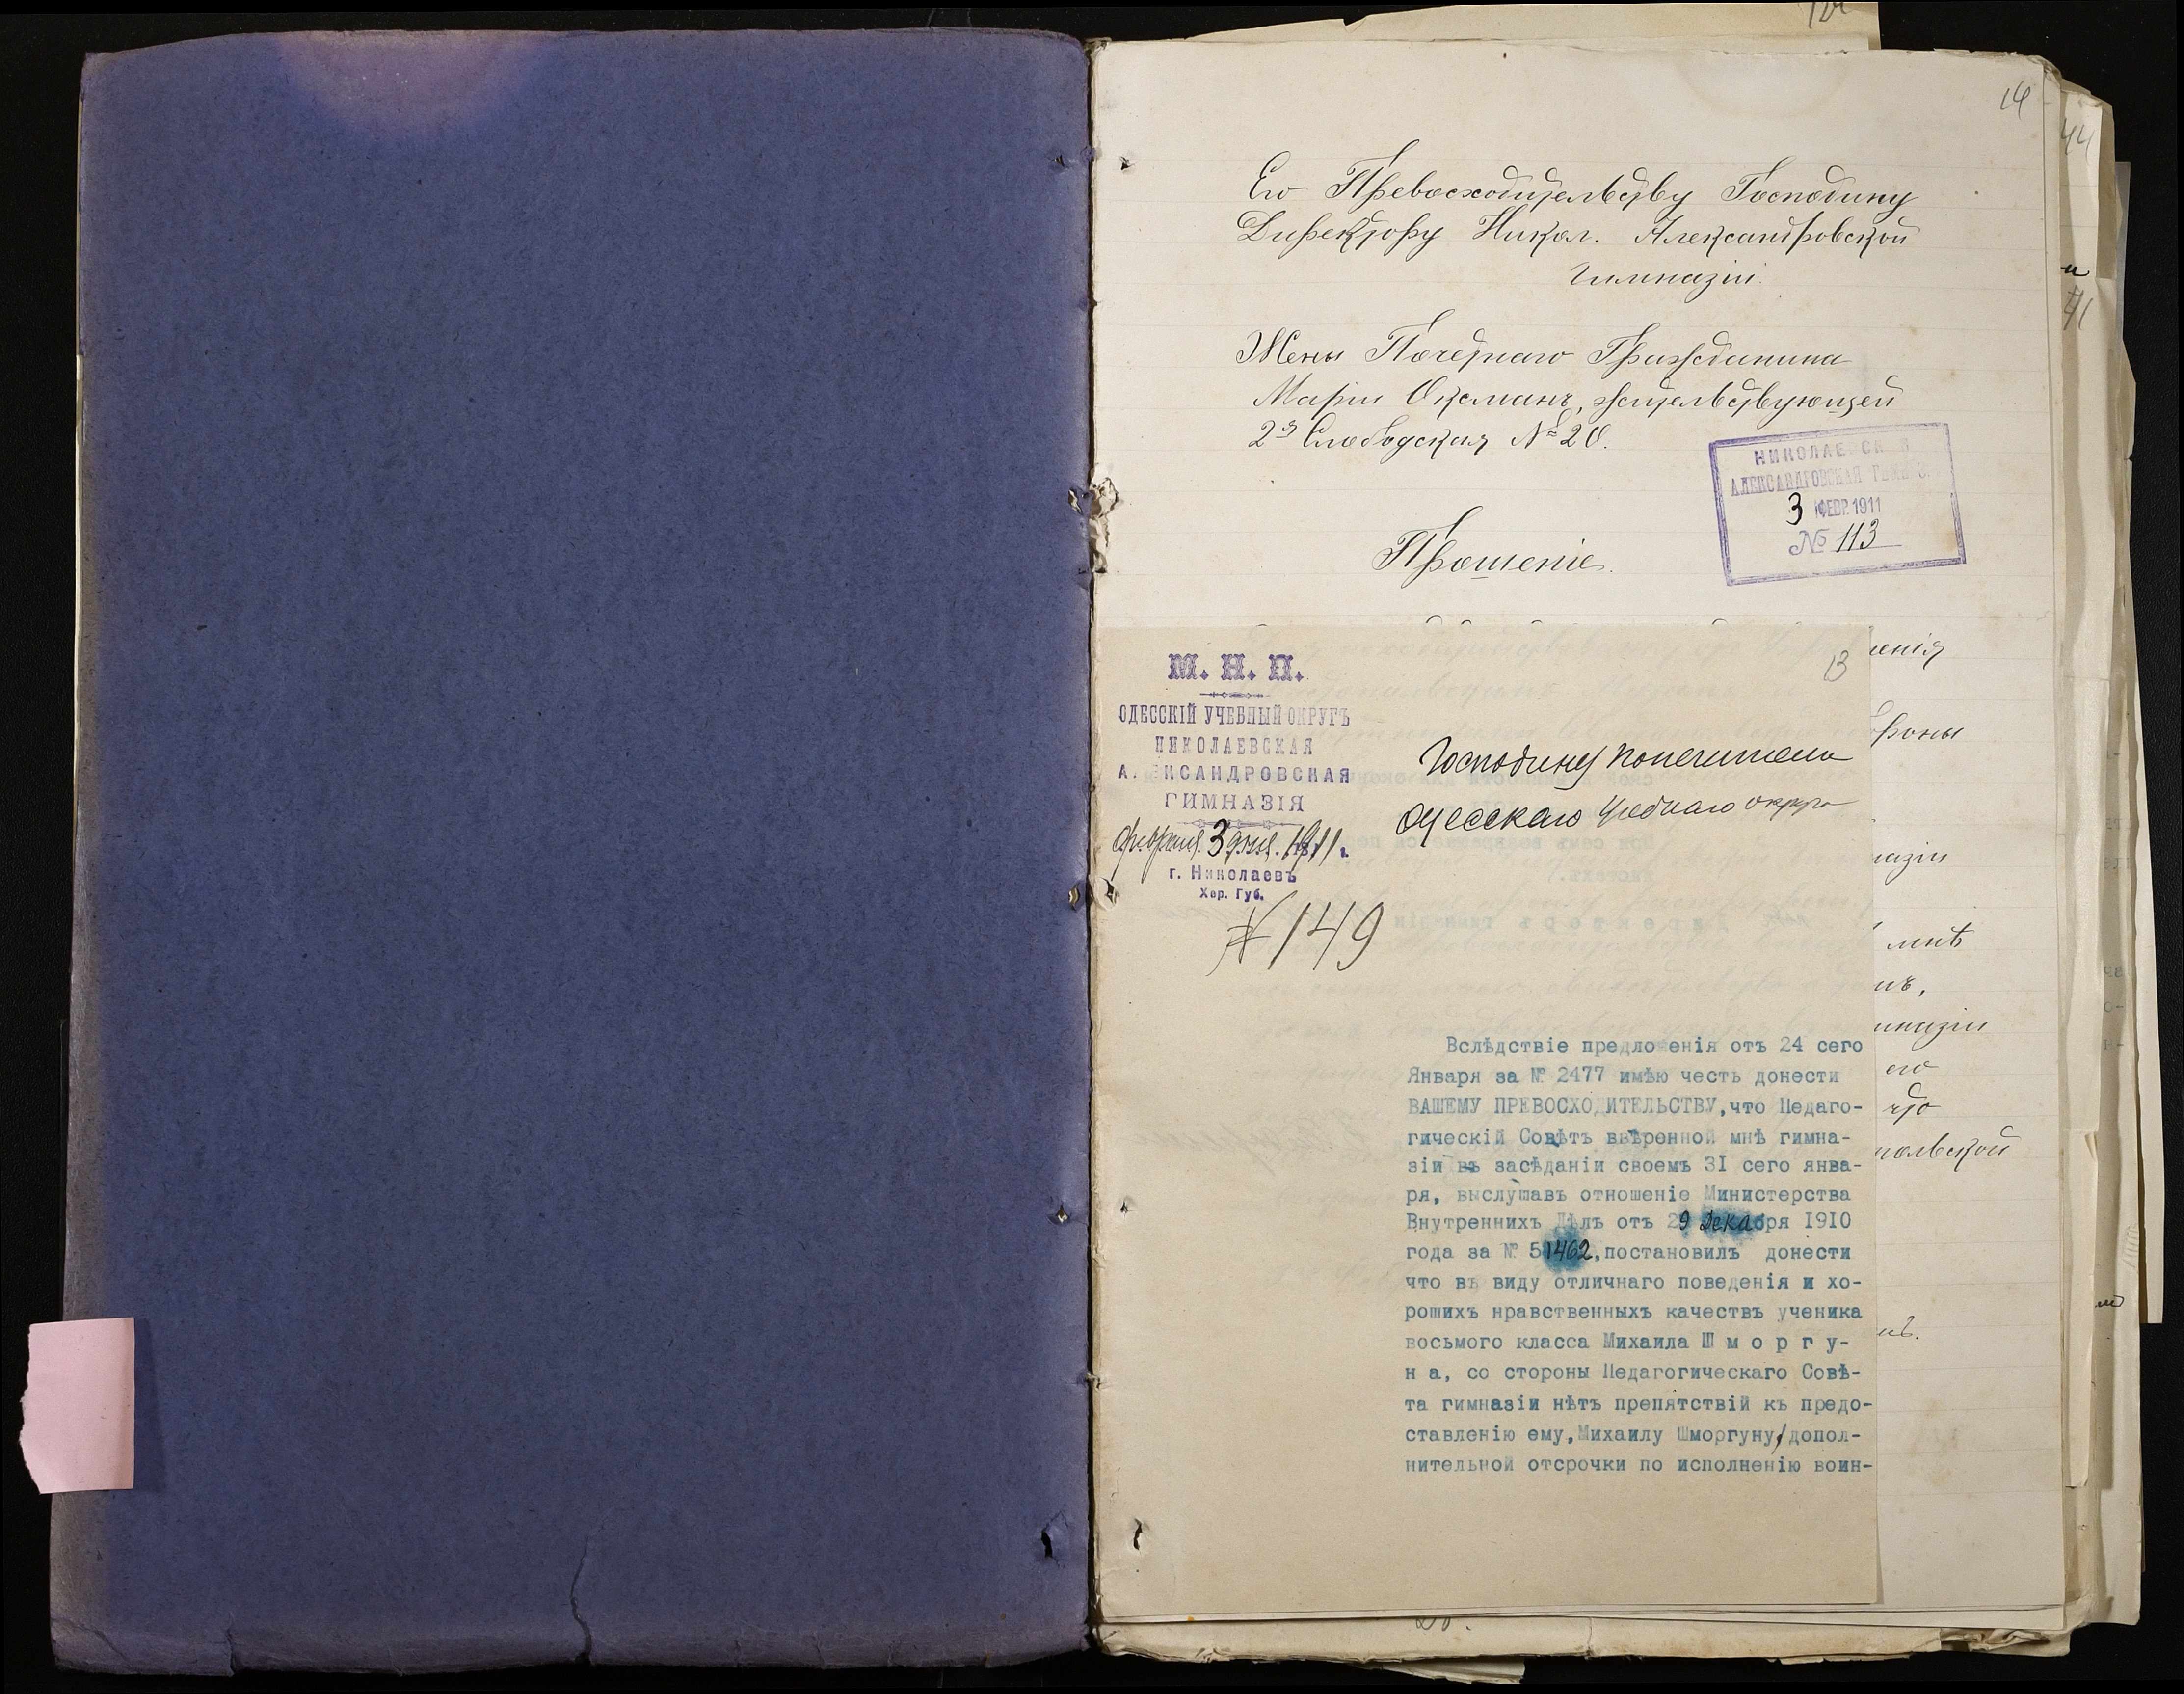 14
Его Превосходительству Господину
Директору Никол. Александровской
Гимназіи.
Жены Почетнаго Гражданина
Маріи Оксманъ, жительствующей
2я Слободская № 20.
НИКОЛАЕВСК Я
АЛЕКСАНДРОВСКАЯ ГИМН
3 ФЕВР. 1911
№ 113
Прошеніе.
13
М. Н. П.
ОДЕССКІЙ УЧЕБНЫЙ ОКРУГЪ
НИКОЛАЕВСКАЯ
А. ЕКСАНДРОВСКАЯ
ГИМНАЗІЯ
февраля 3 дня 1911 г.
г. Николаевъ
Хер. Губ.
№ 149
Господину Попечителю
Одесскаго Учебнаго округа
Вслѣдствіе предло енія отъ 24 сего
Января за № 2477 имѣю честь донести
ВАШЕМУ ПРЕВОСХОДИТЕЛЬСТВУ, что Педаго-
гическій Совѣтъ ввѣренной мнѣ гимна-
зіи въ засѣданіи своемъ 3I сего янва-
ря, выслушавъ отношеніе Министерства
Внутреннихъ Дѣлъ отъ 29 Декабря I9I0
года за № 51462, постановилъ донести
что въ виду отличнаго поведенія и хо-
рошихъ нравственныхъ качествъ ученика
восьмого класса Михаила Ш м о р г у-
н а, со стороны Педагогическаго Совѣ-
та гимназіи нѣтъ препятствій къ предо-
ставленію ему, Михаилу Шморгуну, допол-
нительной отсрочки по исполненію воин-
енія
роны
азіи
мнѣ
нъ,
мназіи
его
что
польской
44
41